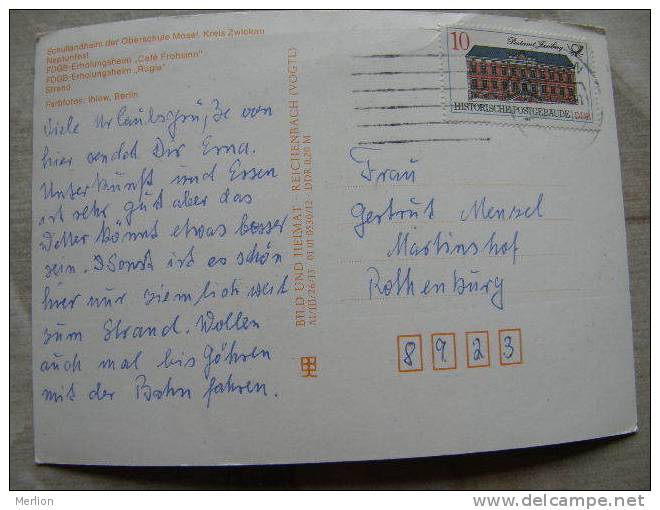 Schullandheim der Oberschule Mosel, Kreis Zwickau
Neptunfest
FDGB-Erholungsheim „Café Frohsinn"
FDGB-Erholungsheim „Rugia"
Strand
Farbfotos: Ihlow, Berlin
Viele Urlaubsgrü,ße von
hier sendet Dir Erna.
Unterkunft und Essen
ist sehr gut aber das
Wetter könnt etwas besser
sein. Sonst ist es schön
hier nur ziemlich weit
zum Strand. Wollen
auch mal bis Göhren
mit der Bahn fahren.
BILD UND HEIMAT REICHENBACH (VOGTL)
A1/III/26/13 01 01 0530/12 DDR 0,20 M
10
Postamt Freiberg
HISTORISCHE POSTGEBÄUDE DDR
Frau
Gertrut Mensel
Martinshof
Rothenburg
8923
Merlion
www.delcampe.net